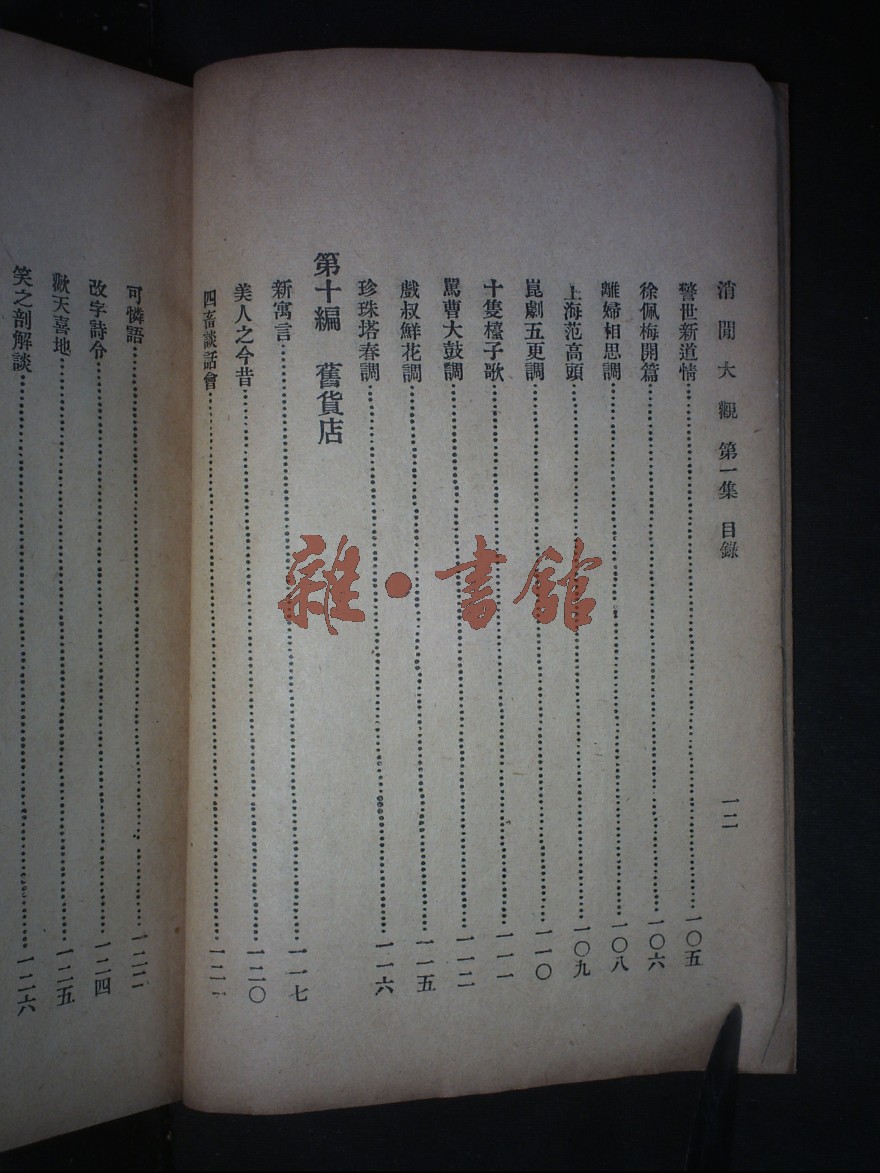 消閒大觀 第一集 目錄 一二
警世新道情 一〇五
徐佩梅開篇 一〇六
離婦相思調 一〇八
上海范高頭 一〇九
崑劇五更調 一一〇
十隻檯子歌 一一一
罵曹大鼓調 一一二
戲叔鮮花調 一一五
珍珠塔春調 一一六
第十編 舊貨店
新寓言 一一七
美人之今昔 一二〇
四畜談話會 一二一
可憐語 一二二
改字詩令 一二四
歡天喜地 一二五
笑之剖解談 一二六
雜·書館